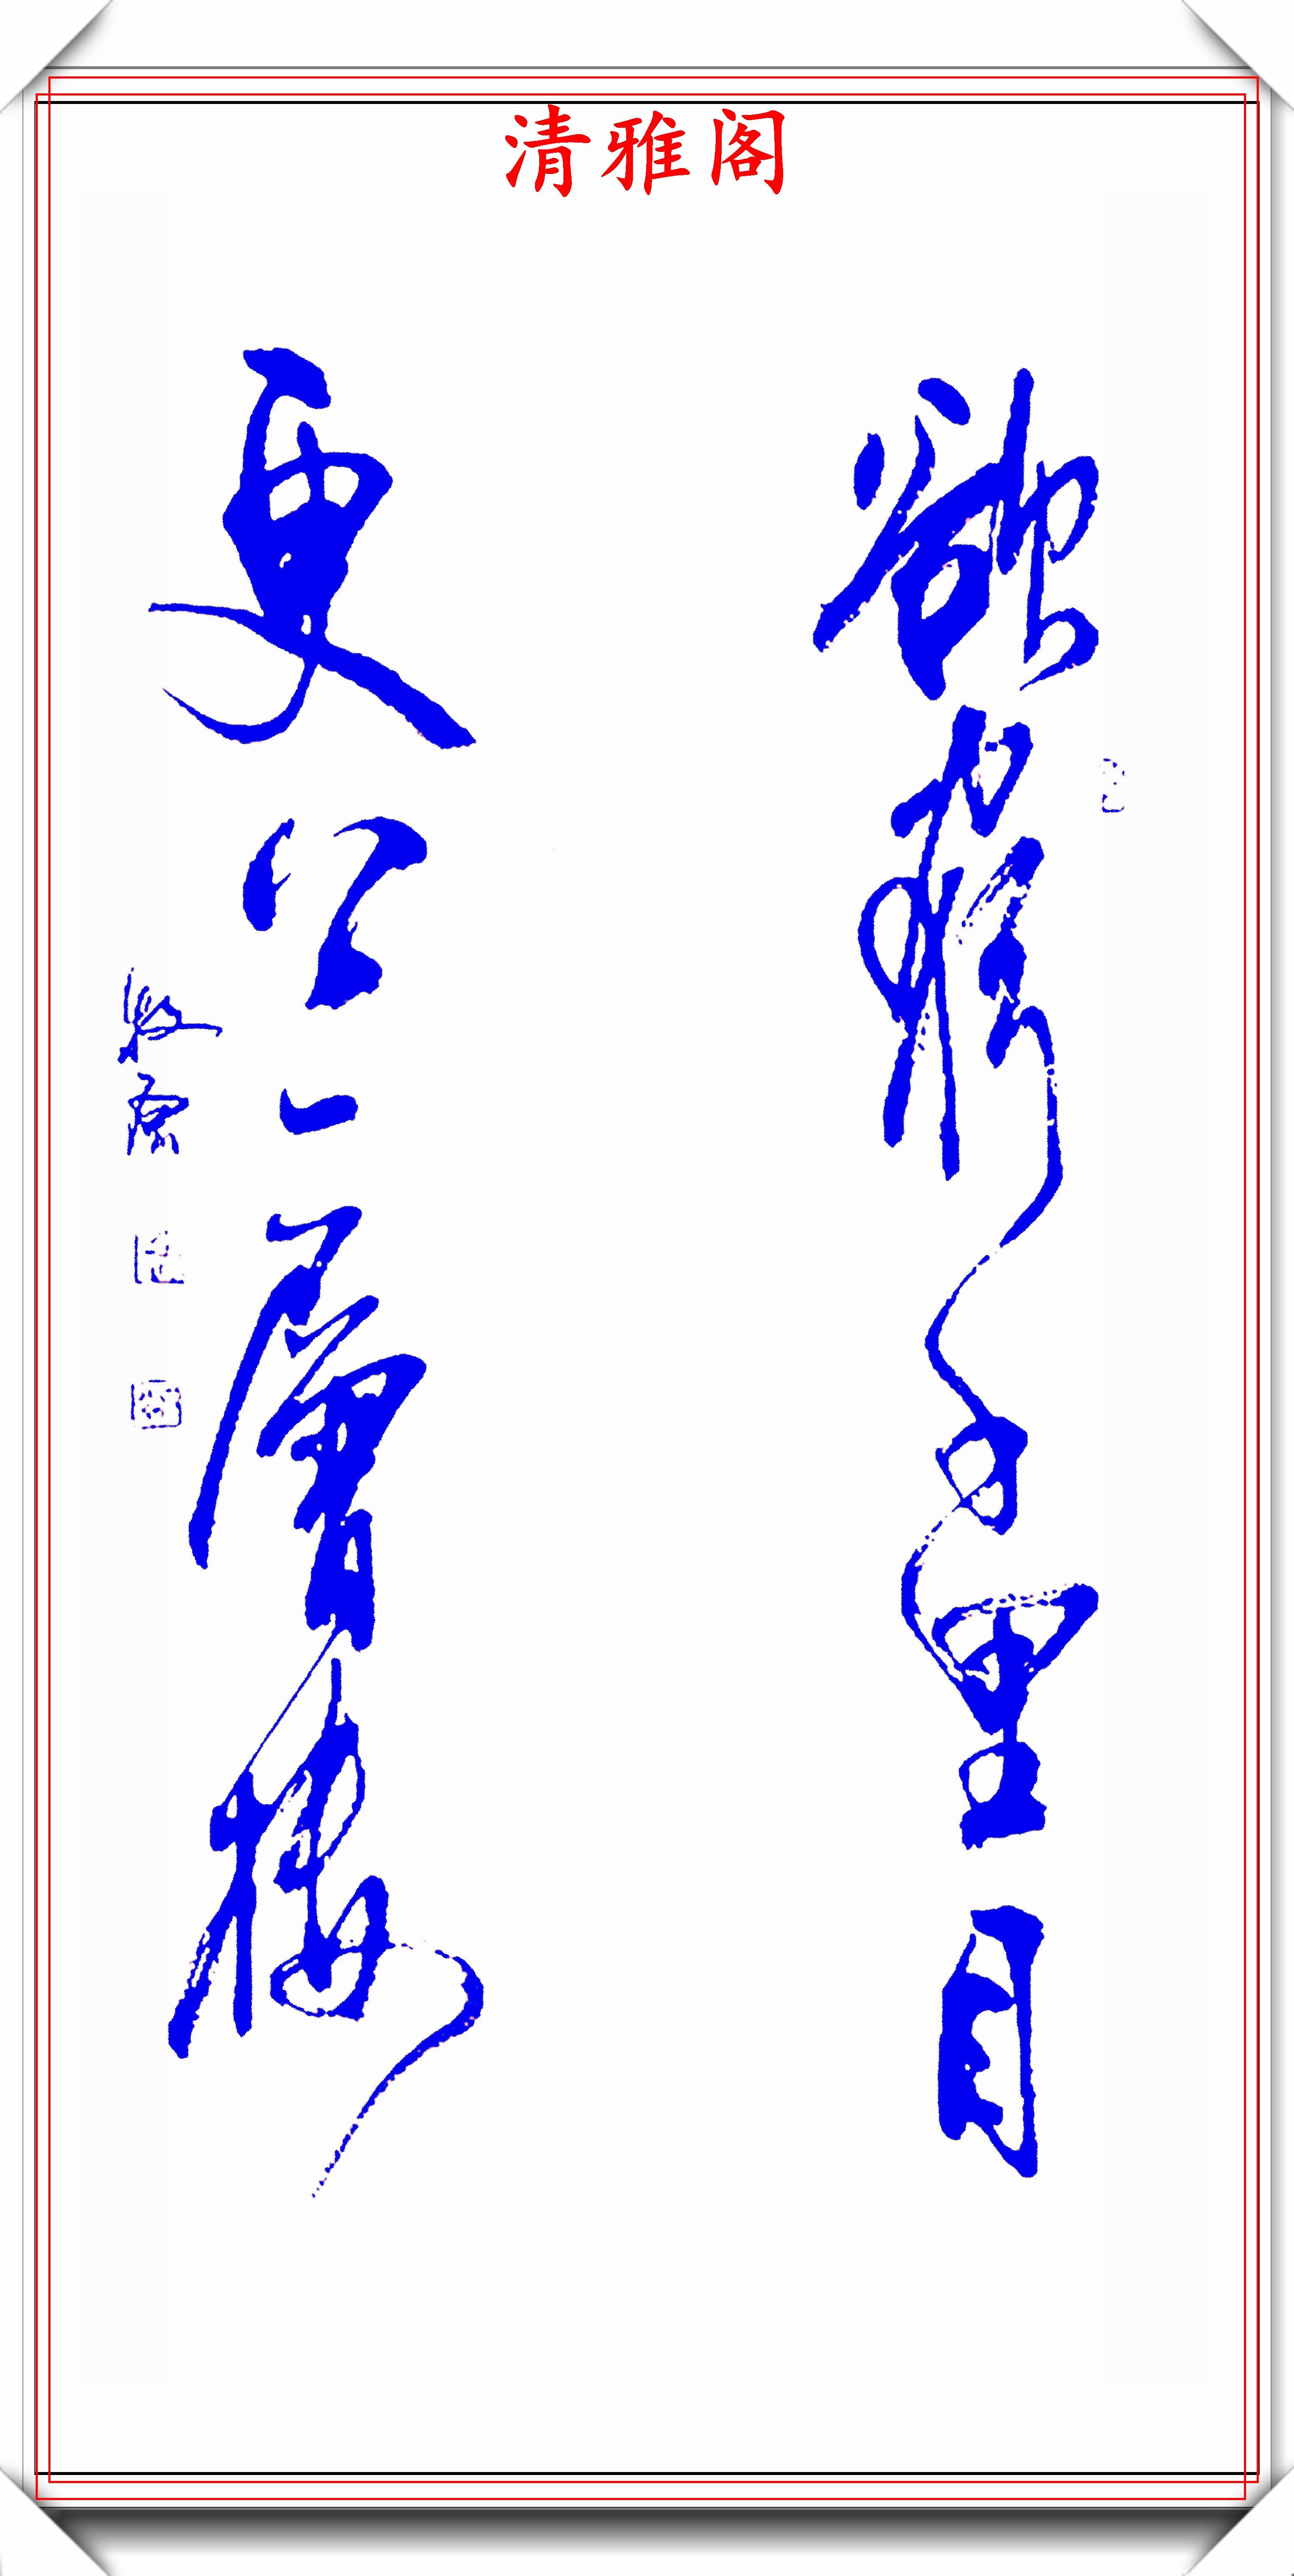 清雅阁
欲穷千里目
更上一层楼